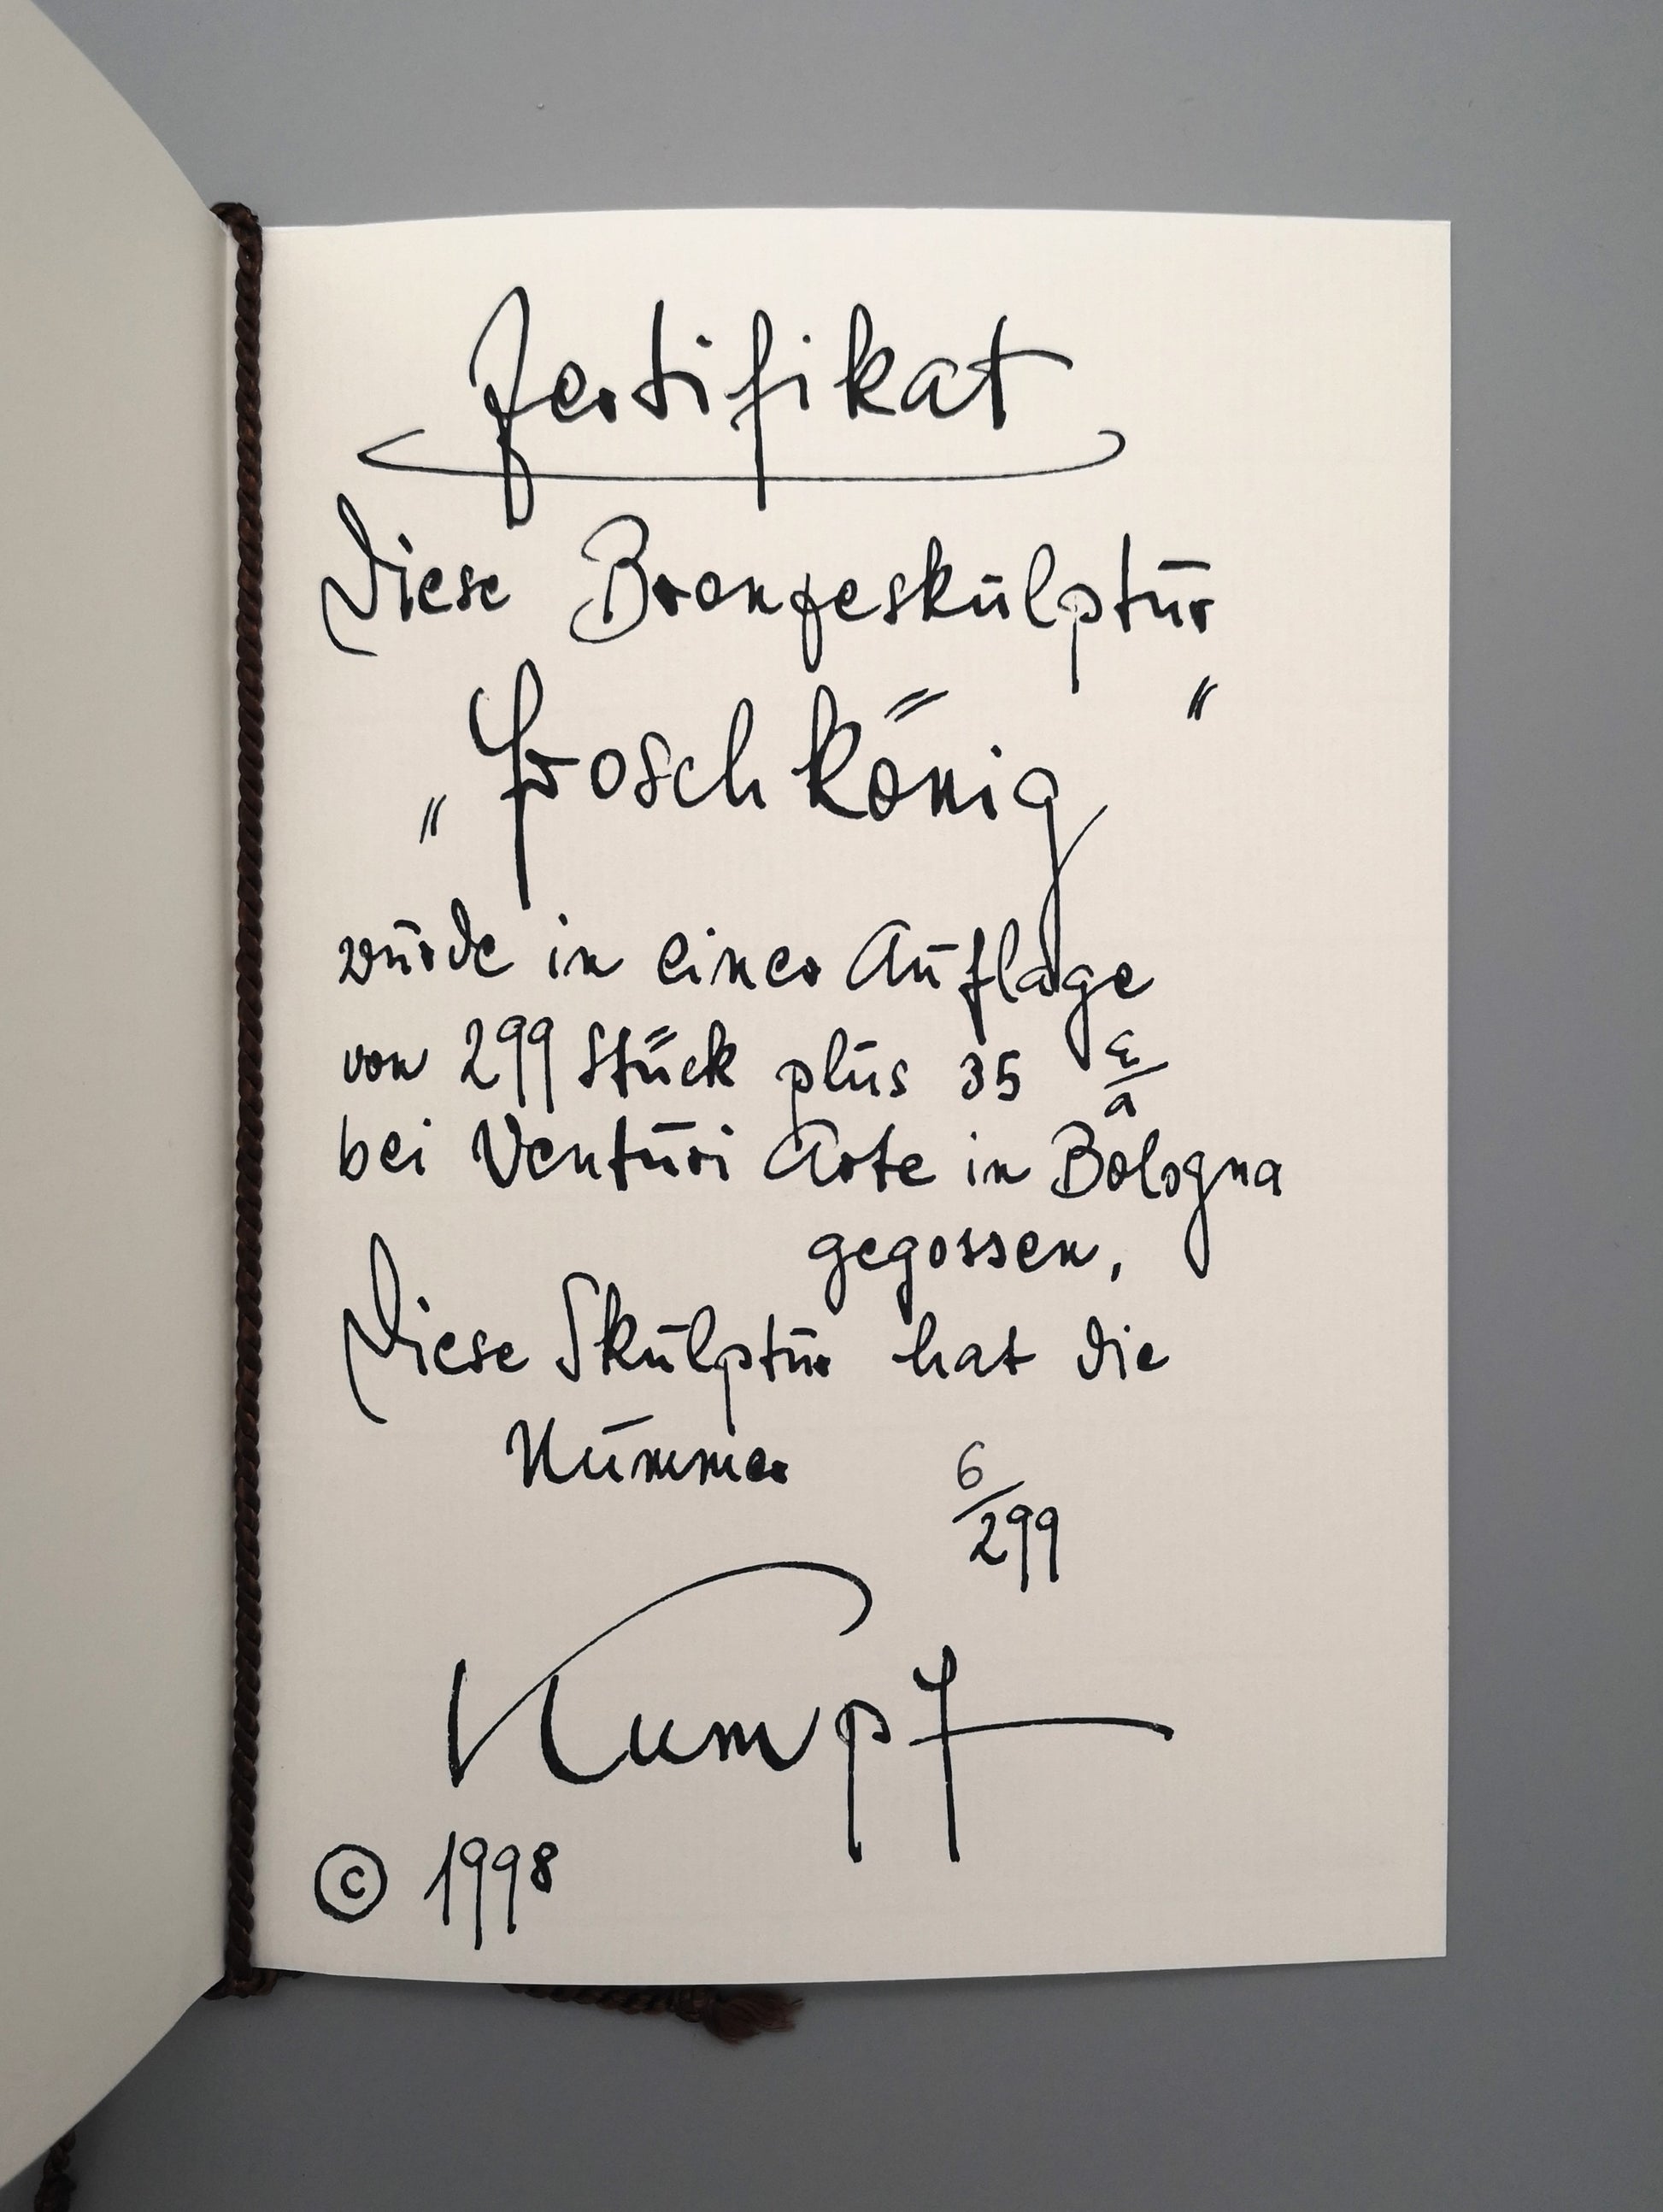 Zertifikat
Diese Bronzeskulptur
„Froschkönig“
wurde in einer Auflage
von 299 Stück plus 35 E/a
bei Venturi Arte in Bologna
gegossen,
Diese Skulptur hat die
Nummer 6/299
Kumpf
© 1998